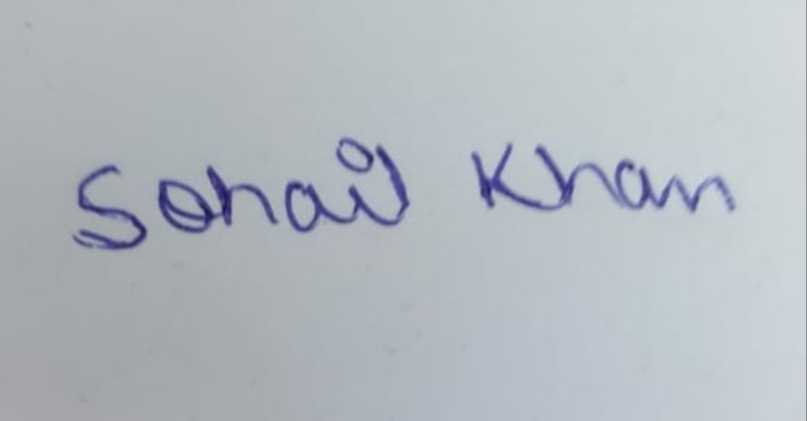 Sohail Khan